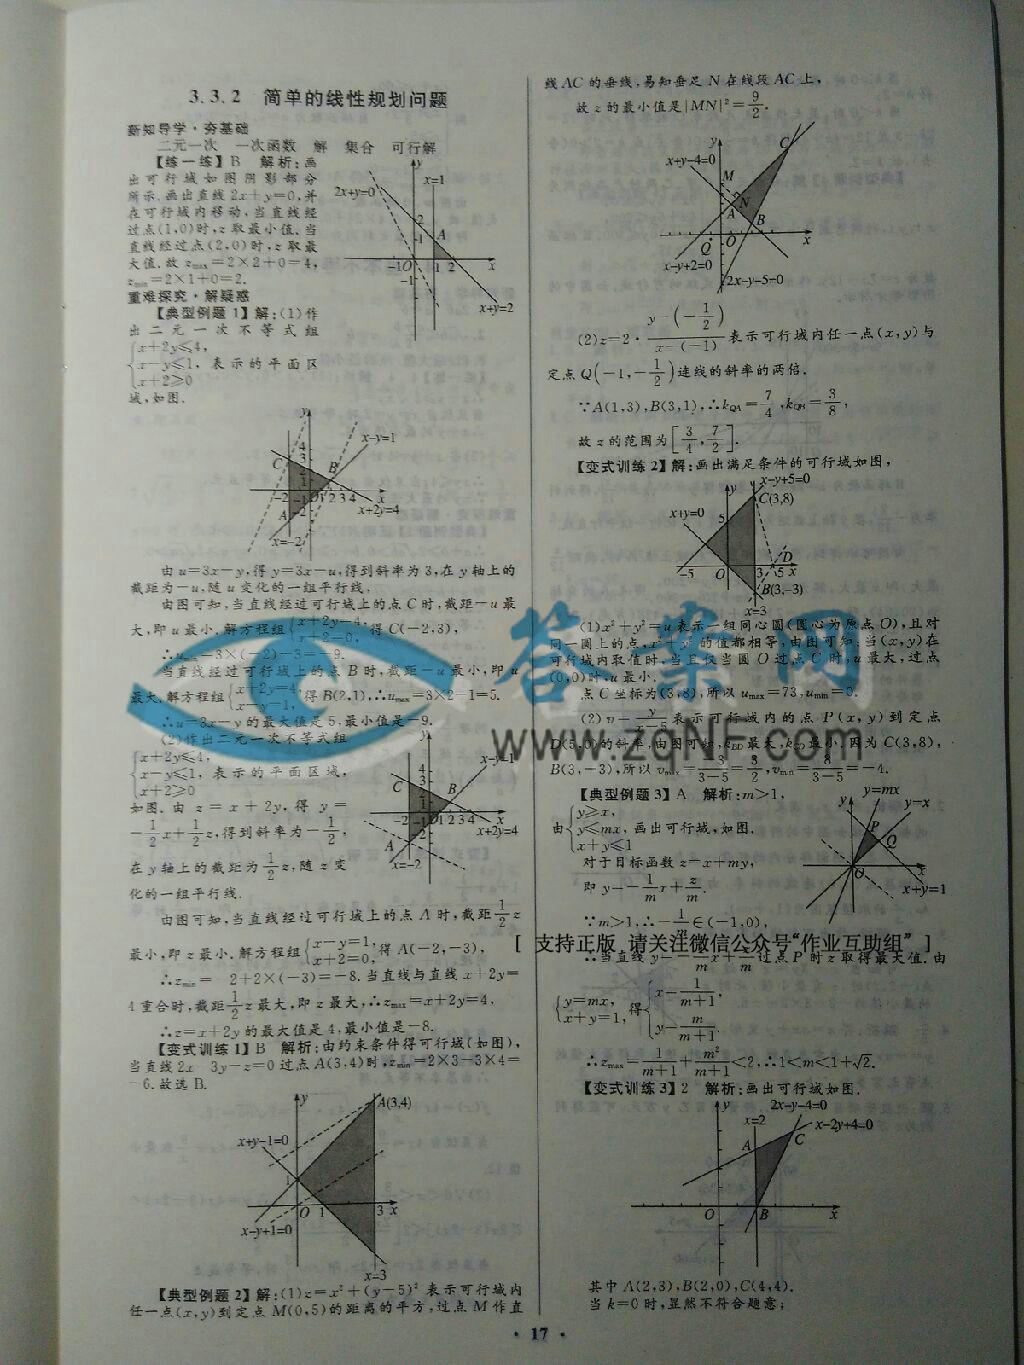 3.3.2 简单的线性规划问题
新知导学·夯基础
二元一次 一次函数 解 集合 可行解
【练一练】B 解析:画
出可行域如图阴影部分
所示.画出直线2x+y=0,并
在可行域内移动,当直线经
过点(1,0)时,z取最小值.当
直线经过点(2,0)时,z取最
大值.故zmax=2×2+0=4,
zmin=2×1+0=2.
2x+y=0
x=1
x+y=2
重难探究·解疑惑
【典型例题1】解:(1)作
出二元一次不等式组
{x+2y≤4,
x-y≤1, 表示的平面区
x+2≥0
域,如图.
x-y=1
x+2y=4
x=-2
由u=3x-y,得y=3x-u,得到斜率为3,在y轴上的
截距为-u,随u变化的一组平行线.
由图可知,当直线经过可行域上的点C时,截距-u最
大,即u最小.解方程组{x+2y=4, x+2=0, 得C(-2,3),
∴umin=3×(-2)-3=-9.
当直线经过可行域上的点B时,截距-u最小,即u
最大,解方程组{x+2y=4, x-y=1, 得B(2,1),∴umax=3×2-1=5.
∴u=3x-y的最大值是5,最小值是-9.
(2)作出二元一次不等式组
{x+2y≤4,
x-y≤1, 表示的平面区域,
x+2≥0
如图.由z=x+2y,得y=
-1/2x+1/2z,得到斜率为-1/2,
在y轴上的截距为1/2z,随z变
化的一组平行线.
x-y=1
x+2y=4
x=-2
由图可知,当直线经过可行域上的点A时,截距1/2z
最小,即z最小.解方程组{x-y=1, x+2=0, 得A(-2,-3),
∴zmin= 2+2×(-3)=-8.当直线与直线x+2y=
4重合时,截距1/2z最大,即z最大,∴zmax=x+2y=4,
∴z=x+2y的最大值是4,最小值是-8.
【变式训练1】B 解析:由约束条件得可行域(如图),
当直线2x 3y-z=0过点A(3,4)时,zmin=2×3-3×4=
-6.故选B.
A(3,4)
x+y-1=0
x-y+1=0
x=3
【典型例题2】解:(1)z=x²+(y-5)²表示可行域内
任一点(x,y)到定点M(0,5)的距离的平方,过点M作直
线AC的垂线,易知垂足N在线段AC上,
故z的最小值是|MN|²=9/2.
x+y-4=0
x-y+2=0
2x-y-5=0
(2)z=2·(y-(-1/2))/(x-(-1))表示可行域内任一点(x,y)与
定点Q(-1,-1/2)连线的斜率的两倍.
∵A(1,3),B(3,1),∴kQA=7/4,kQB=3/8,
故z的范围为[3/4,7/2].
【变式训练2】解:画出满足条件的可行域如图,
x-y+5=0
C(3,8)
x+y=0
B(3,-3)
x=3
(1)x²+y²=u表示一组同心圆(圆心为原点O),且对
同一圆上的点,x²+y²的值都相等,由图可知:当(x,y)在
可行域内取值时,当且仅当圆O过点C时,u最大,过点
(0,0)时,u最小.
点C坐标为(3,8),所以umax=73,umin=0.
(2)v=y/(x-5)表示可行域内的点P(x,y)到定点
D(5,0)的斜率,由图可知,kBD最大,kCD最小,因为C(3,8),
B(3,-3),所以vmax=-3/(3-5)=3/2,vmin=8/(3-5)=-4.
【典型例题3】A 解析:m>1,
由{y≥x, y≤mx, x+y≤1 画出可行域,如图.
对于目标函数z=x+my,
即y=-1/m x+z/m.
y=mx
y=x
x+y=1
∵m>1,∴-1/m∈(-1,0),
[ 支持正版 请关注微信公众号“作业互助组” ]
∴当直线y=-1/m x+z/m过点P时z取得最大值.由
{y=mx, x+y=1, 得{x=1/(m+1), y=m/(m+1).
∴zmax=1/(m+1)+m²/(m+1)<2.∴1<m<1+√2.
【变式训练3】2 解析:画出可行域如图.
2x-y-4=0
x=2
x-2y+4=0
其中A(2,3),B(2,0),C(4,4).
当k=0时,显然不符合题意;
·17·
答案网
www.zqNF.com